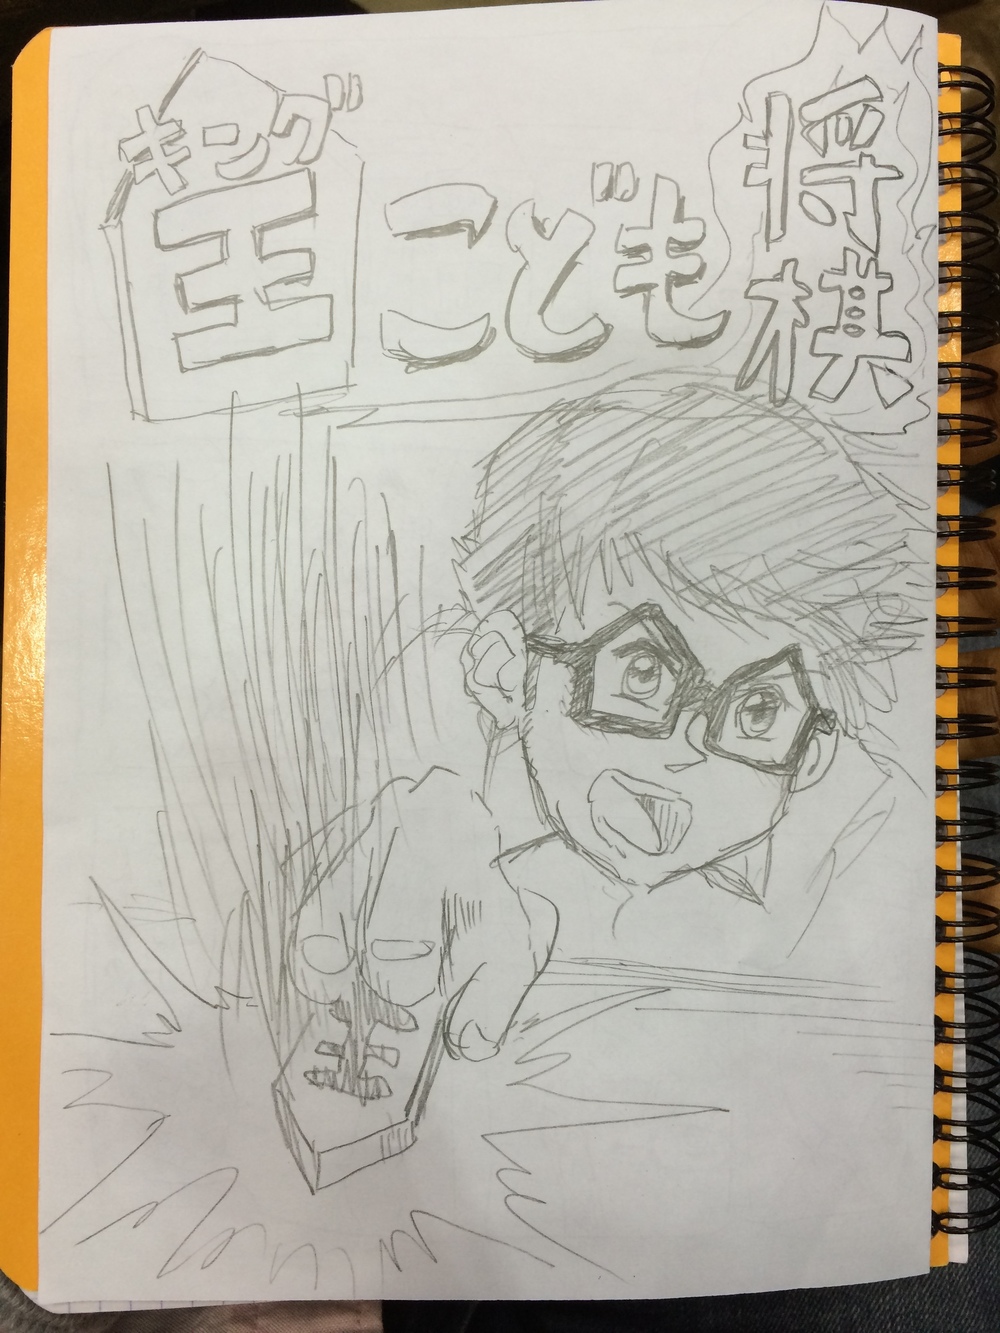 キング
王こども将棋